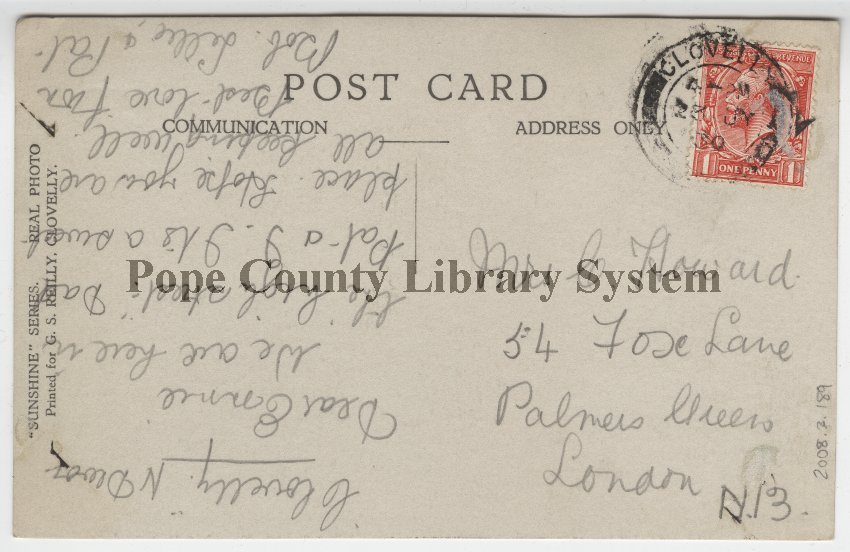 POST CARD
COMMUNICATION
ADDRESS ONLY
CLOVELLY
ONE PENNY
"SUNSHINE" SERIES. REAL PHOTO
Printed for G. S. REILLY, CLOVELLY.
Clovelly. N Devon
Dear Connie
We are here in
the high steed. Dad
Pat & I. It is a sweet
place. Hope you are
all keeping well.
Best love from
Bob. Lellie & Pat.
Mrs C Howard.
54 Foxe Lane
Palmers Green
London
N.13.
Pope County Library System
2008.2.189